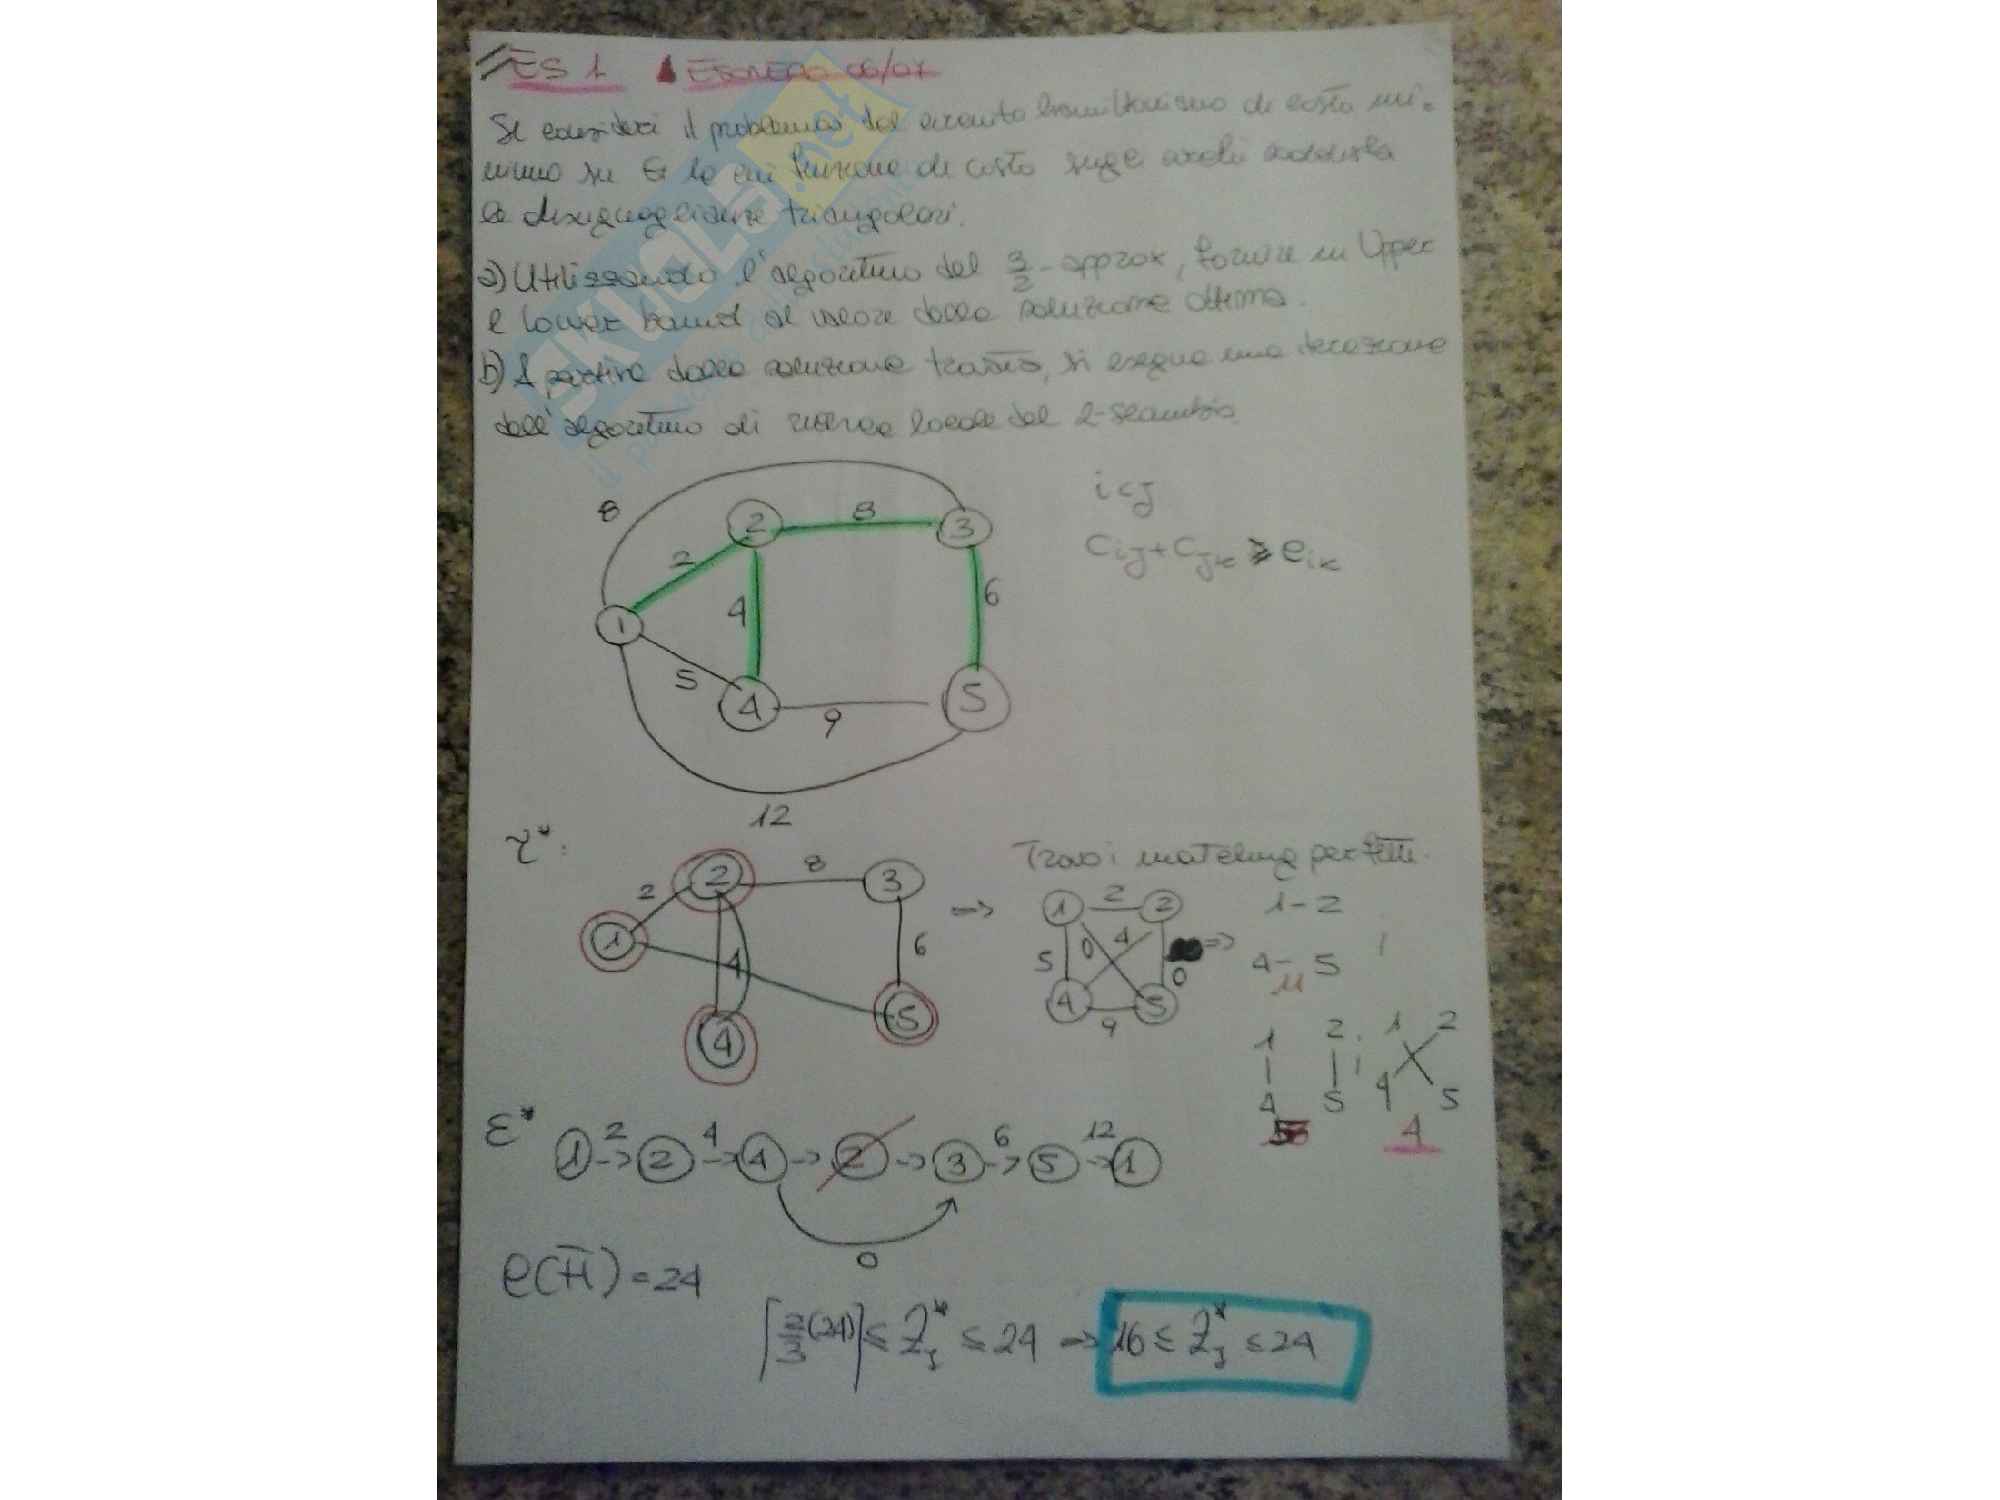 ES 1 ESONERO 06/07
Si consideri il problema del circuito hamiltoniano di costo mi-
nimo su G la cui funzione di costo sugli archi soddisfa
le disuguaglianze triangolari.
a) Utilizzando l'algoritmo del 3/2-approx, fornire un Upper
e lower bound al valore della soluzione ottima.
b) A partire dalla soluzione trovata, si esegua una iterazione
dell'algoritmo di ricerca locale del 2-scambio.
SKUOLA.net
8
2 8 3
i<j
2
Cij+Cjk ≥ Cik
4 6
1
5
4 9 5
12
τ*:
Trovo i matching perfetti.
2 2 8 3
1 2 2 1-2
1 4 6 => 5 0 4 0 => 4-5
4 5 4 9 5 11
1 2 1 2
4 5 4 5
4
ε* 1 2-> 2 4-> 4 -> 2 -> 3 6-> 5 12-> 1
0
C(H̅) = 24
⌈2/3(24)⌉ ≤ Z*I ≤ 24 => 16 ≤ Z*I ≤ 24